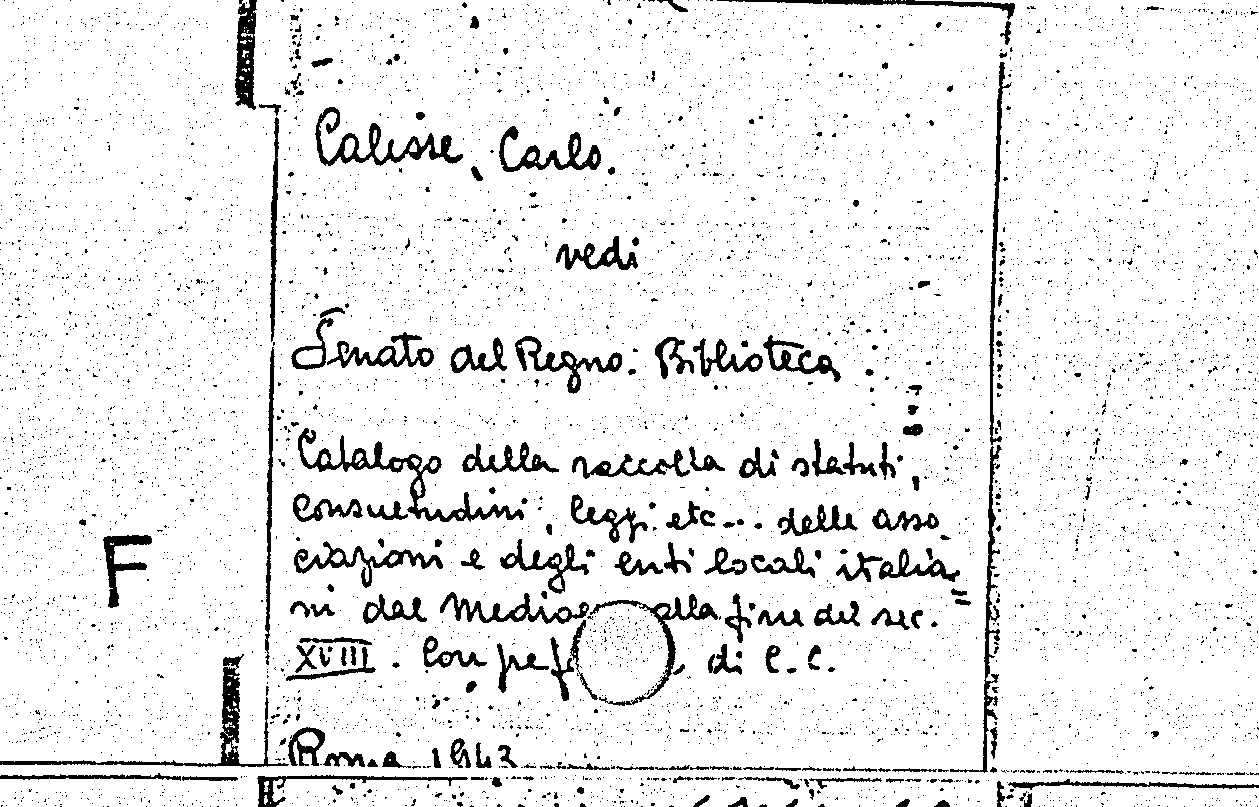 Calisse, Carlo.
vedi
Senato del Regno: Biblioteca.
Catalogo della raccolta di statuti,
consuetudini, leggi etc... delle asso
ciazioni e degli enti locali italia=
F
ni dal alla fine del sec.
XVIII. Con di C. C.
Roma 1943